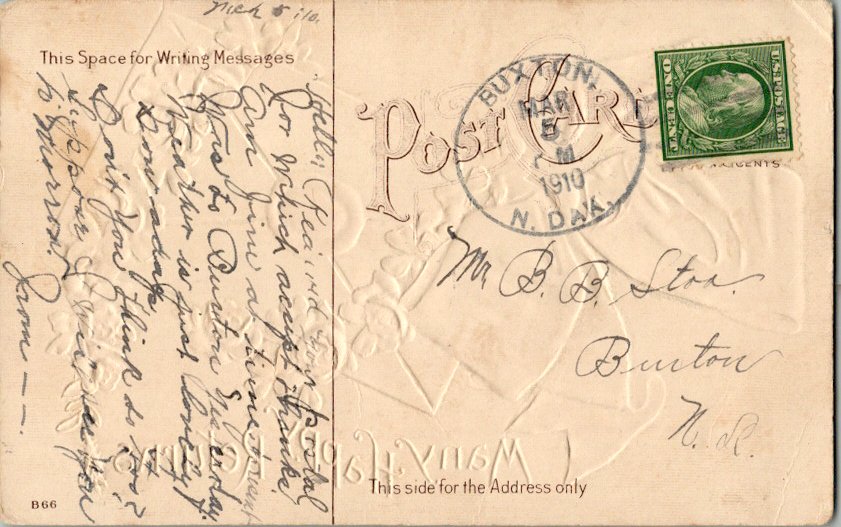 Mch 5 '10.
This Space for Writing Messages
Hello, Rec'd your Postal
for which accept thanks
Am fine at
Was to Buxton Yesterday
Weather is just lovely
now adays
Don't You think so too?
Suppose I will see you
to morrow.
From — —
B66
POST CARD
BUXTON,
MAR
5
M
1910
N. DAK.
U.S. POSTAGE
ONE CENT
Mr B. B. Stoa.
Buxton
N. D.
Many Happy Returns
This side for the Address only